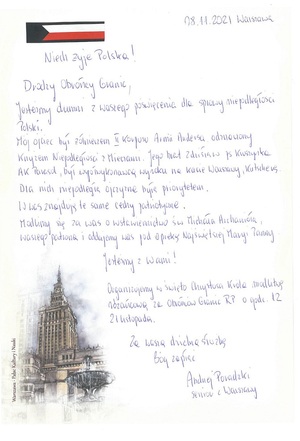 18.11.2021 Warszawa
Niech żyje Polska!
Drodzy Obrońcy Granic,
Jesteśmy dumni z waszego poświęcenia dla sprawy niepodległości
Polski.
Mój ojciec był żołnierzem II Korpusu Armii Andersa odznaczony
Krzyżem Niepodległości z Mieczami. Jego brat Zdzisław ps.
AK był na kacie Warszawy, Kutscherze.
Dla nich niepodległa ojczyzna była priorytetem.
W was znajduję te same cechy patriotyczne.
Modlimy się za was o wstawiennictwo św Michała Archanioła,
waszego patrona i oddajemy was pod opiekę Najświętszej Maryi Panny
Jesteśmy z Wami!
Organizujemy w święto Chrystusa Króla modlitwę
różańcową za Obrońców Granic RP o godz. 12
21 listopada.
Za waszą dzielną służbę
Bóg zapłać
Andrzej
senior z Warszawy
Warszawa - Pałac Kultury i Nauki